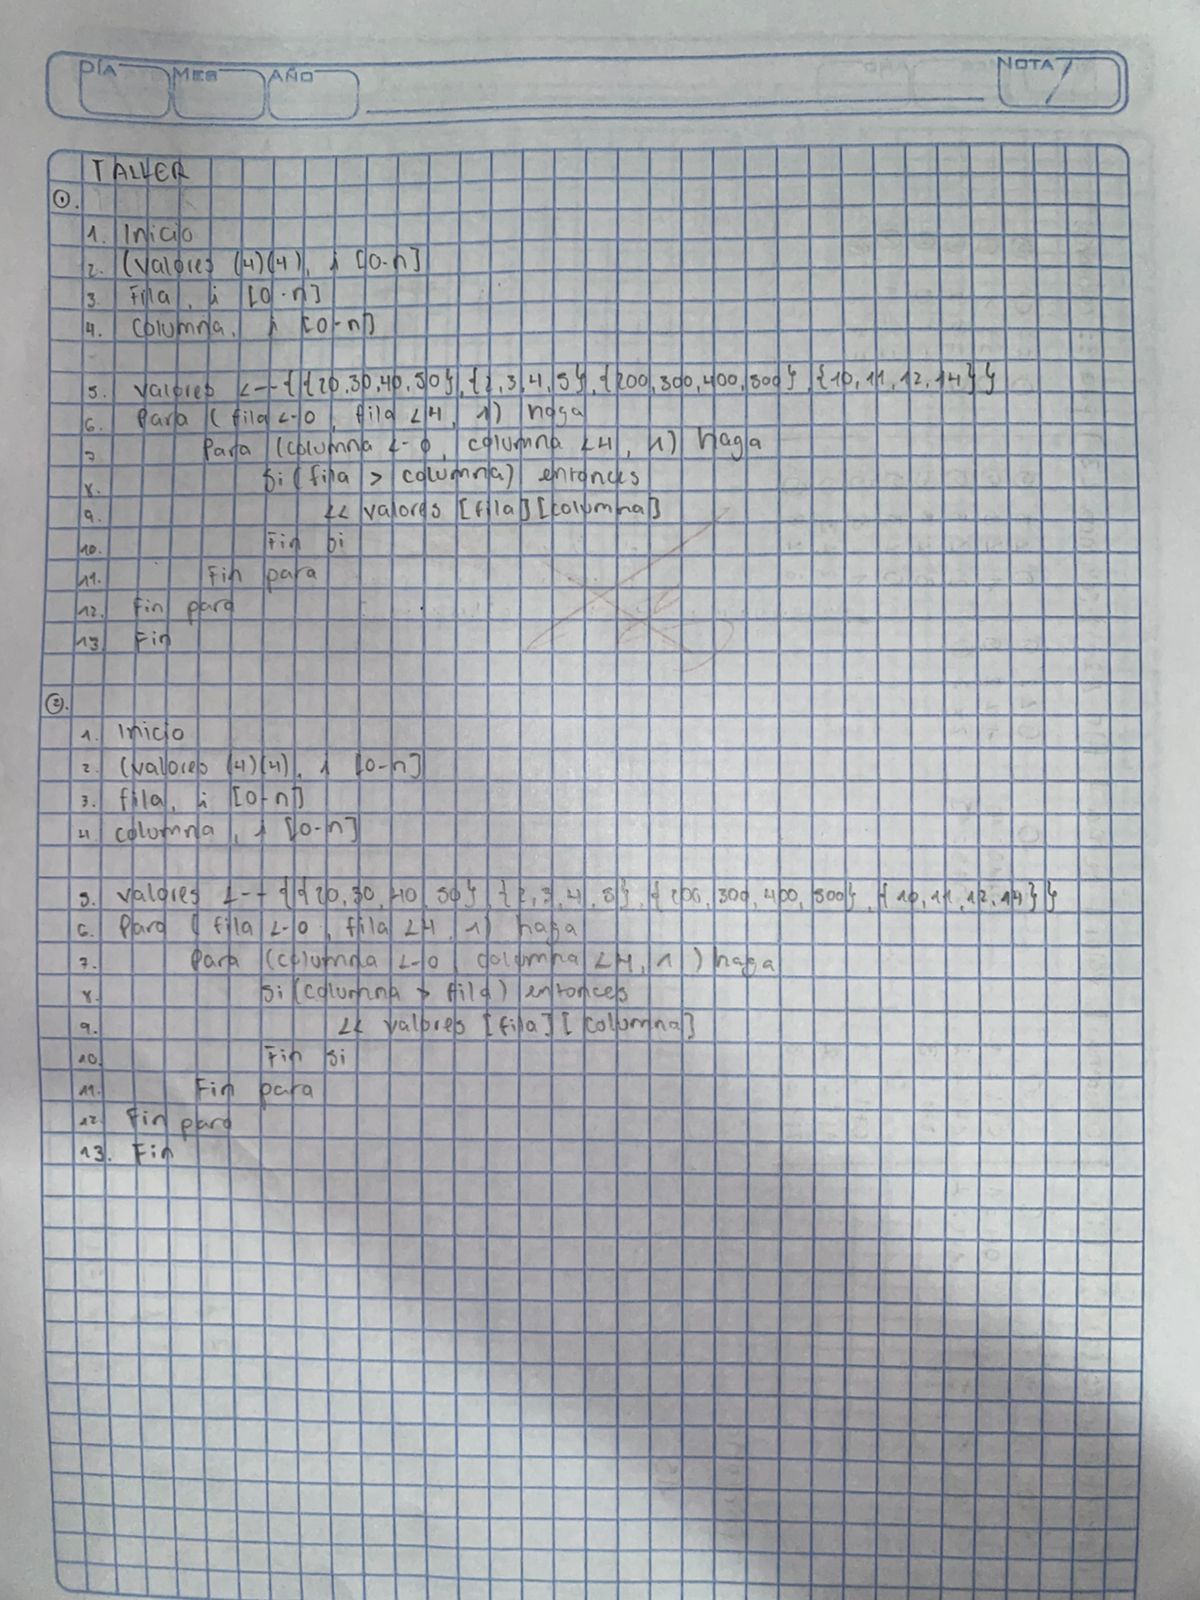 DÍA MES AÑO NOTA
TALLER
①.
1. Inicio
2. (valores (4)(4), i [0-n]
3. Fila, i [0-n]
4. columna, i [0-n]
5. valores <-- {{20,30,40,50},{2,3,4,5},{200,300,400,500},{10,11,12,14}}
6. Para (fila <-0, fila <4, 1) haga
7. Para (columna <-0, columna <4, 1) haga
8. Si (fila > columna) entonces
9. << valores [fila][columna]
10. Fin si
11. Fin para
12. Fin para
13. Fin
②.
1. Inicio
2. (valores (4)(4), i [0-n]
3. fila, i [0-n]
4. columna, i [0-n]
5. valores <-- {{20,30,40,50},{2,3,4,5},{200,300,400,500},{10,11,12,14}}
6. Para (fila <-0, fila <4, 1) haga
7. Para (columna <-0, columna <4, 1) haga
8. Si (columna > fila) entonces
9. << valores [fila][columna]
10. Fin si
11. Fin para
12. Fin para
13. Fin